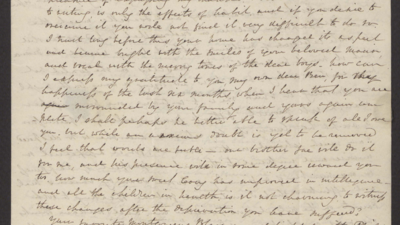 to writing is only the effects of habit and if you desire to
overcome it you will not find it very difficult to do so
I trust long before this your home has changed its aspect
and become bright with the smiles of your beloved
and vocal with the merry tones of the dear boys. how can
I express my gratitude to you my own dear for the
happiness of the last six months, when I hear that you are
surrounded by your family and yours again com
plete I shall perhaps be better able to speak of all I owe
you, but while an doubt is yet to be removed
I feel that words are futile — our brother Jas will do it
for me, and his presence will in some degree reward you
for how much your has improved in intelligence
and all the children in health is it not charming to witness
these changes after the deprivation you have suffered?